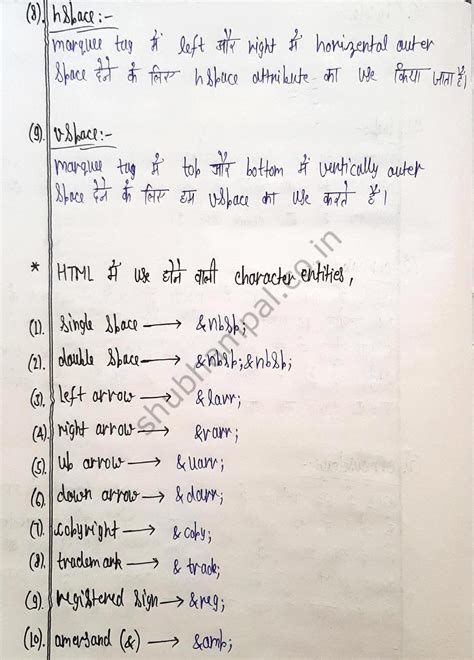 (8). hSpace:-
marquee tag में left और right में horizental outer
Space देने के लिए hSpace attribute का use किया जाता है।
(9). vSpace:-
marquee tag में top और bottom में vertically outer
Space देने के लिए हम vSpace का use करते हैं।
* HTML में use होने वाली character entities,
(1). Single Space → &nbsp;
(2). double Space → &nbsp;&nbsp;
(3). left arrow → &larr;
(4). right arrow → &rarr;
(5). up arrow → &uarr;
(6). down arrow → &darr;
(7). copyright → &copy;
(8). trademark → &trade;
(9). registered sign → &reg;
(10). amersand (&) → &amp;
shubhampal.co.in